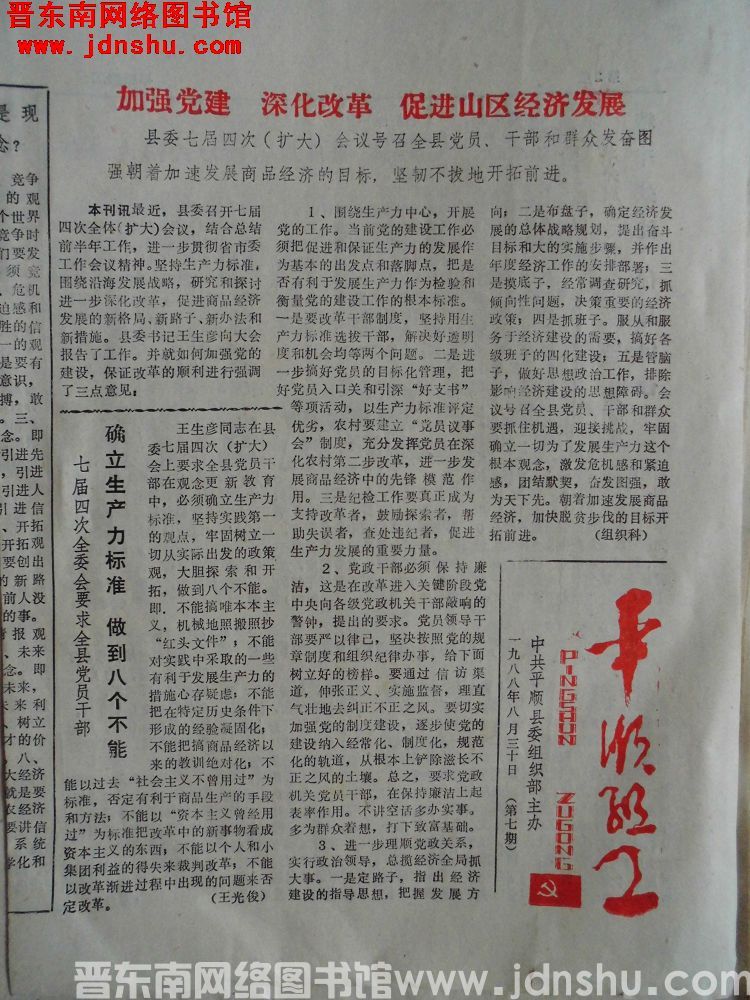 晋东南网络图书馆
www.jdnshu.com
加强党建 深化改革 促进山区经济发展
县委七届四次（扩大）会议号召全县党员、干部和群众发奋图
强朝着加速发展商品经济的目标，坚韧不拔地开拓前进。
本刊讯 最近，县委召开七届
四次全体（扩大）会议，结合总结
前半年工作，进一步贯彻省市委
工作会议精神。坚持生产力标准，
围绕沿海发展战略，研究和探讨
进一步深化改革，促进商品经济
发展的新格局、新路子、新办法和
新措施。县委书记王生彦向大会
报告了工作。并就如何加强党的
建设，保证改革的顺利进行强调
了三点意见：
1、围绕生产力中心，开展
党的工作。当前党的建设工作必
须把促进和保证生产力的发展作
为基本的出发点和落脚点，把是
否有利于发展生产力作为检验和
衡量党的建设工作的根本标准。
一是要改革干部制度，坚持用生
产力标准选拔干部，解决好透明
度和机会均等两个问题。二是进
一步搞好党员的目标化管理，把
好党员入口关和引深“好支书”
等项活动，以生产力标准评定
优劣，农村要建立“党员议事
会”制度，充分发挥党员在深
化农村第二步改革，进一步发
展商品经济中的先锋模范作
用。三是纪检工作要真正成为
支持改革者，鼓励探索者，帮
助失误者，查处违纪者，促进
生产力发展的重要力量。
2、党政干部必须保持廉
洁，这是在改革进入关键阶段党
中央向各级党政机关干部敲响的
警钟，提出的要求。党员领导干
部要严以律已，坚决按照党的规
章制度和组织纪律办事，给下面
树立好的榜样。要通过信访渠
道，伸张正义、实施监督，理直
气壮地去纠正不正之风。要切实
加强党的制度建设，逐步使党的
建设纳入经常化、制度化，规范
化的轨道，从根本上铲除滋长不
正之风的土壤。总之，要求党政
机关党员干部，在保持廉洁上起
表率作用。不讲空话多办实事。
多为群众着想，打下致富基础。
3、进一步理顺党政关系，
实行政治领导，总揽经济全局抓
大事。一是定路子，指出经济
建设的指导思想，把握发展方
向；二是布盘子，确定经济发
展的总体战略规划，提出奋斗
目标和大的实施步骤，并作出
年度经济工作的安排部署；三
是摸底子，经常调查研究，抓
倾向性问题，决策重要的经济
政策；四是抓班子。服从和服
务于经济建设的需要，搞好各
级班子的四化建设；五是管脑
子，做好思想政治工作，排除
影响经济建设的思想障碍。会
议号召全县党员、干部和群众
要抓住机遇，迎接挑战，牢固
确立一切为了发展生产力这个
根本观念，激发危机感和紧迫
感，团结默契，奋发图强，敢
为天下先。朝着加速发展商品
经济，加快脱贫步伐的目标开
拓前进。 （组织科）
确立生产力标准 做到八个不能
七届四次全委会要求全县党员干部
王生彦同志在县
委七届四次（扩大）
会上要求全县党员干
部在观念更新教育
中，必须确立生产力
标准，坚持实践第一
的观点，牢固树立一
切从实际出发的政策
观，大胆探索和开
拓，做到八个不能。
即．不能搞唯本本主
义，机械地照搬照抄
“红头文件”；不能
对实践中采取的一些
有利于发展生产力的
措施心存疑虑；不能
把在特定历史条件下
形成的经验凝固化；
不能把搞商品经济以
来的教训绝对化；不
能以过去“社会主义不曾用过”为
标准，否定有利于商品生产的手段
和方法；不能以“资本主义曾经用
过”为标准把改革中的新事物看成
资本主义的东西；不能以个人和小
集团利益的得失来裁判改革；不能
以改革渐进过程中出现的问题来否
定改革。 （王光俊）
平顺组工
PINGSHUN ZUGONG
中共平顺县委组织部主办
一九八八年八月三十日 （第七期）
是现
念？
竞争
的观
个世界
竞争时
们要发
须竞
、危机
迫感和
胜的信
一的观
是要有
意识，
搏，敢
。三、
念。即
引进先
，引进
引进人
引进信
、开拓
开拓观
要创出
的新路
前人没
的事。
念。即
未来，
未来利
、树立
才的价
八、
大经济
就是要
农经济
要讲信
系统
学化和
晋东南网络图书馆www.jdnshu.com